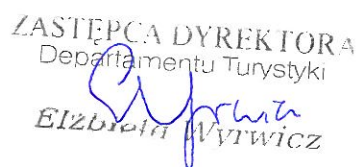 ZASTĘPCA DYREKTORA
Departamentu Turystyki
Elżbieta Wyrwicz